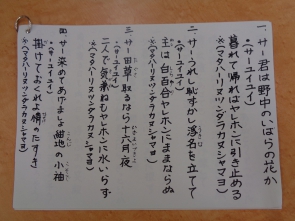 一、サー君は野中のいばらの花か
(サーユイユイ)
暮れて帰ればヤレホンに引き止める
※(マタハーリヌツンダラカヌシャマヨ)
二、サーうれし恥ずかし浮名を立てて
(サーユイユイ)
主は白百合ヤレホンにままならぬ
※(マタハーリヌツンダラカヌシャマヨ)
三、サー田草取るなら十六夜月
いざよいづき
(サーユイユイ)
二人で気兼ねもヤレホンに水いらず
※(マタハーリヌツンダラカヌシャマヨ)
四、サー染めてあげましょ紺地の小袖
(サーユイユイ)
掛けておくれよ情のたすき
※(マタハーリヌツンダラカヌシャマヨ)